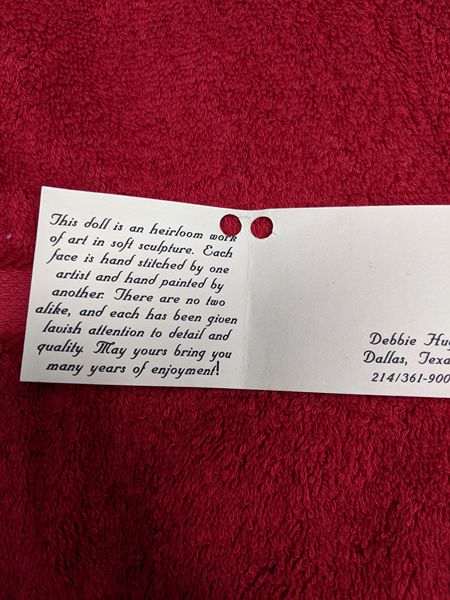 This doll is an heirloom work
of art in soft sculpture. Each
face is hand stitched by one
artist and hand painted by
another. There are no two
alike, and each has been given
lavish attention to detail and
quality. May yours bring you
many years of enjoyment!
Debbie
Dallas,
214/361-900